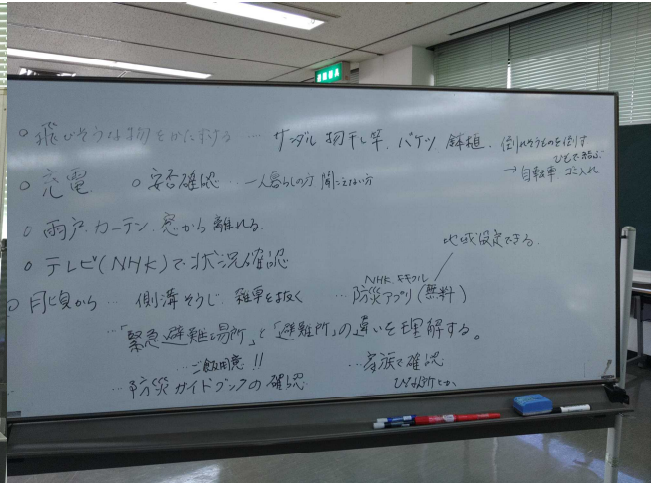 ○飛びそうな物をかたずける … サンダル 物干し竿、バケツ 鉢植、倒れそうものを倒す
ひもで結ぶ
→自転車 ゴミ入れ
○充電 ○安否確認 … 一人暮らしの方 聞こえない方
○雨戸、カーテン、窓から離れる
○テレビ(NHK)で状況確認
地域設定できる
○日頃から … 側溝そうじ 雑草を抜く … 防災アプリ(無料)
NHK
…「緊急避難場所」と「避難所」の違いを理解する。
…ご飯用意!! …家族で確認
…防災ガイドブックの確認